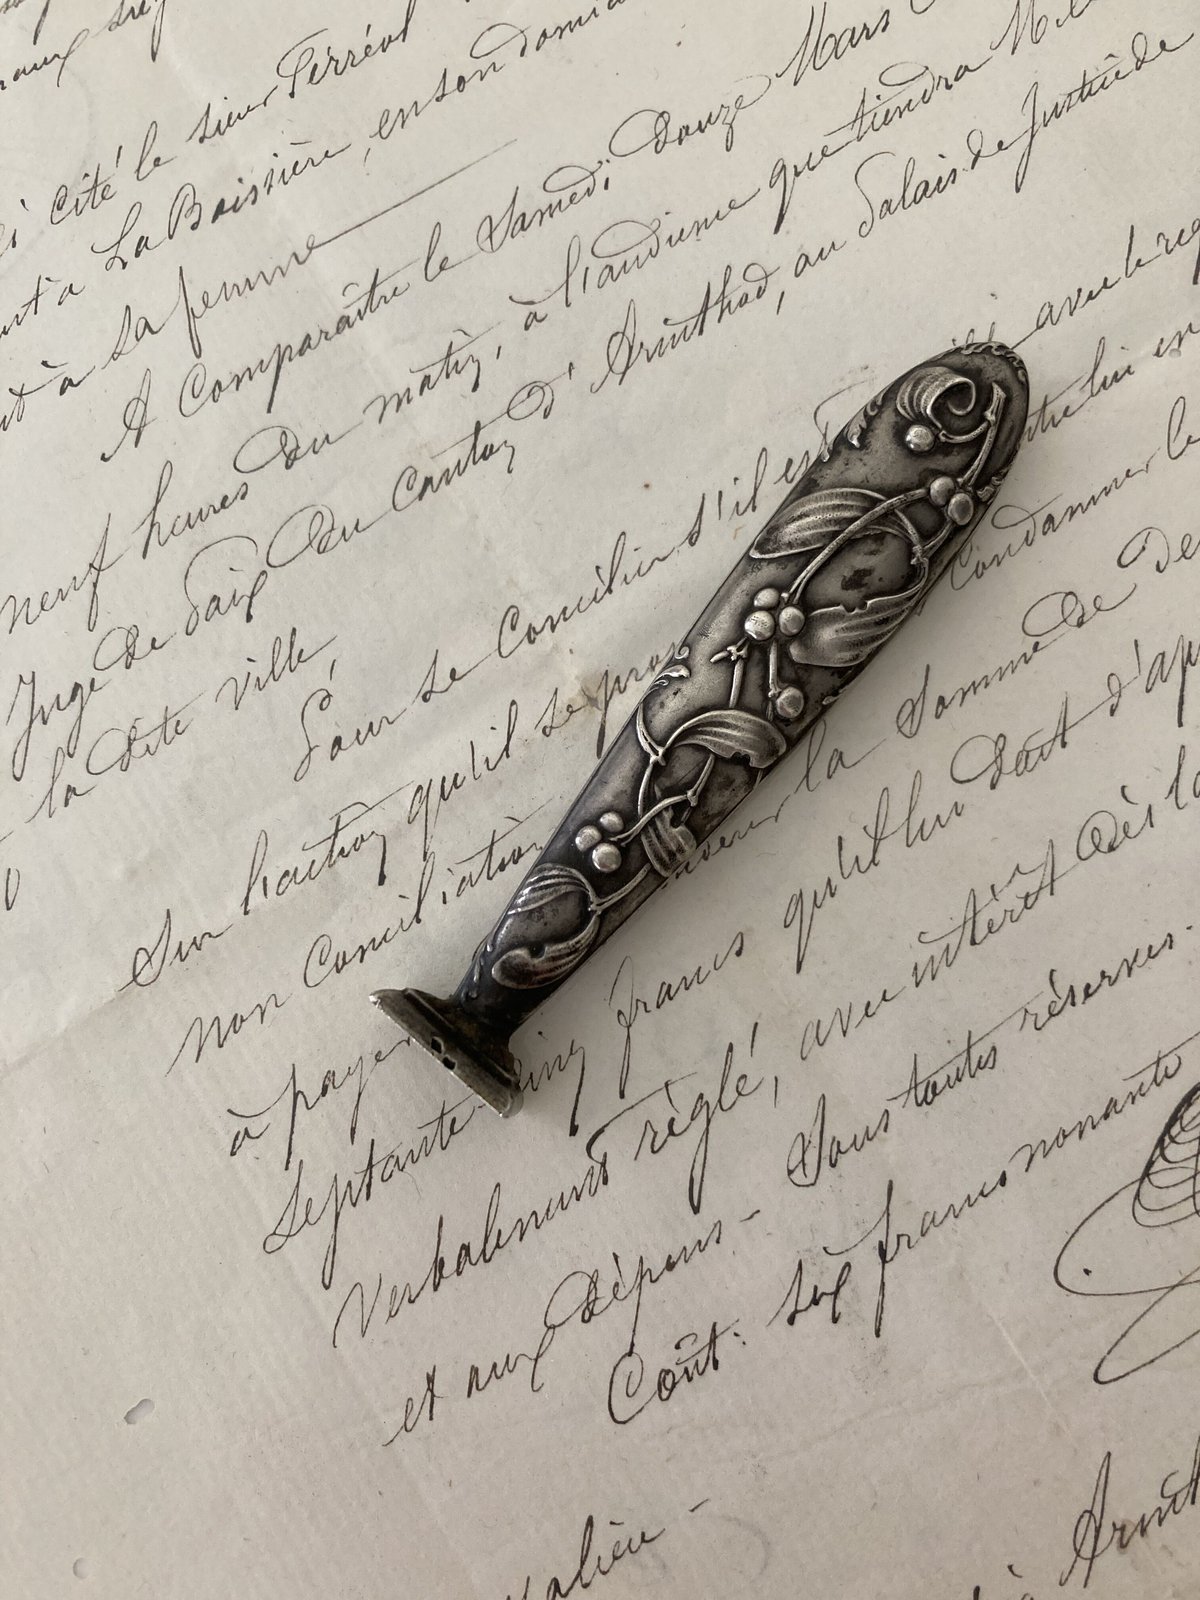 cité le sieur Férréol
à La Boissière, en son
à sa femme
A Comparaître le Samedi, douze Mars
neuf heures du matin, à l'audience que tiendra
Juge de Paix du Canton d'Arinthod, au Palais de Justice de
la dite ville,
Pour se Concilier s'il est avec le
Sur l'action qu'il se contre lui en
non Conciliation Condamner le
à payer la Somme de
Septante francs qu'il lui doit d'ap
Verbalement réglé, avec intérêt dès
et aux dépens - Sous toutes réserves.
Coût: six francs nonante